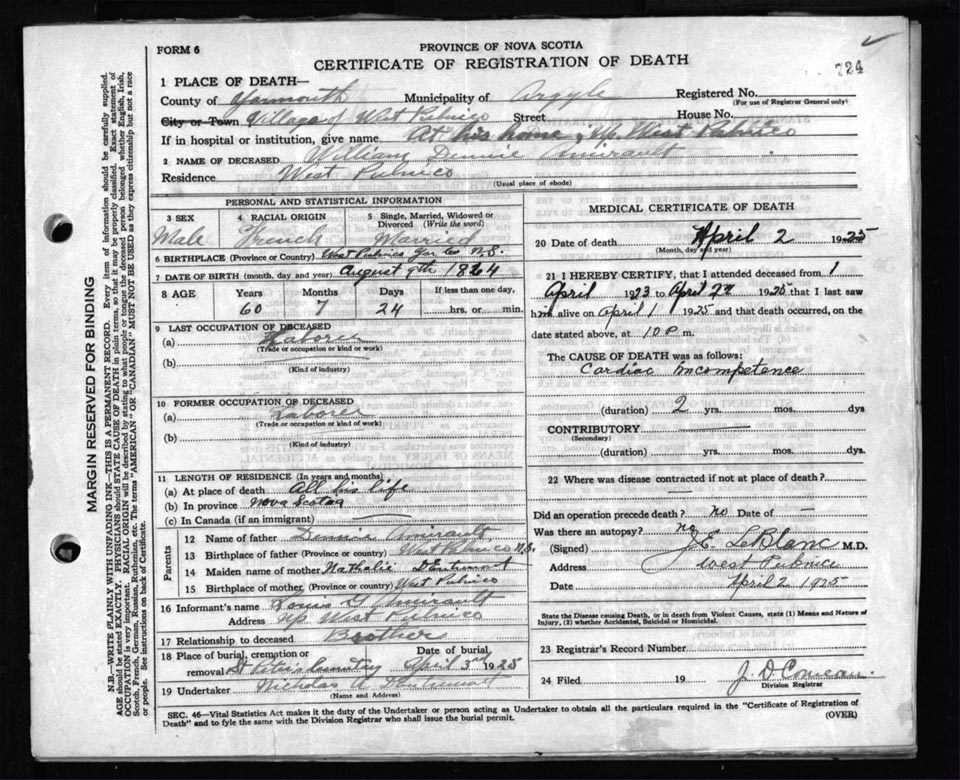 724
FORM 6
PROVINCE OF NOVA SCOTIA
CERTIFICATE OF REGISTRATION OF DEATH
1 PLACE OF DEATH—
County of Yarmouth Municipality of Argyle Registered No.
(For use of Registrar General only)
City or Town Village of West Pubnico Street House No.
If in hospital or institution, give name At his home, Up. West Pubnico
2 NAME OF DECEASED William Dennie Amirault
Residence West Pubnico
(Usual place of abode)
PERSONAL AND STATISTICAL INFORMATION
3 SEX 4 RACIAL ORIGIN 5 Single, Married, Widowed or Divorced (Write the word)
Male French Married
6 BIRTHPLACE (Province or Country) West Pubnico Yar Co N.S.
7 DATE OF BIRTH (month, day and year) August 9th 1864
8 AGE Years Months Days If less than one day,
60 7 24 hrs. or min.
9 LAST OCCUPATION OF DECEASED
(a) Laborer
(Trade or occupation or kind of work)
(b)
(Kind of industry)
10 FORMER OCCUPATION OF DECEASED
(a) Laborer
(Trade or occupation or kind of work)
(b)
(Kind of industry)
11 LENGTH OF RESIDENCE (In years and months)
(a) At place of death All his life
(b) In province Nova Scotia
(c) In Canada (if an immigrant)
Parents
12 Name of father Dennis Amirault
13 Birthplace of father (Province or country) West Pubnico N.S.
14 Maiden name of mother Nathalie D'Entremont
15 Birthplace of mother (Province or country) West Pubnico
16 Informant's name Louis G. Amirault
Address Up West Pubnico
17 Relationship to deceased Brother
18 Place of burial, cremation or removal Date of burial
St Peters Cemetery April 3rd 1925
19 Undertaker Nicholas A. D'Entremont
(Name and Address)
MEDICAL CERTIFICATE OF DEATH
20 Date of death April 2 1925
(Month, day and year)
21 I HEREBY CERTIFY, that I attended deceased from 1
April 1923 to April 2nd 1925 that I last saw
him alive on April 1 1925 and that death occurred, on the
date stated above, at 10 P. m.
The CAUSE OF DEATH was as follows:
Cardiac incompetence
(duration) 2 yrs. mos. dys
CONTRIBUTORY
(Secondary)
(duration) yrs. mos. dys.
22 Where was disease contracted if not at place of death?
Did an operation precede death? no Date of —
Was there an autopsy? No
(Signed) J.E. LeBlanc M.D.
Address West Pubnico
Date April 2 1925
State the Disease causing Death, or in death from Violent Causes, state (1) Means and Nature of
Injury, (2) whether Accidental, Suicidal or Homicidal.
23 Registrar's Record Number
24 Filed 19 J. D. Comeau
Division Registrar
SEC. 46—Vital Statistics Act makes it the duty of the Undertaker or person acting as Undertaker to obtain all the particulars required in the "Certificate of Registration of
Death" and to fyle the same with the Division Registrar who shall issue the burial permit.
(OVER)
MARGIN RESERVED FOR BINDING
N.B.—WRITE PLAINLY WITH UNFADING INK—THIS IS A PERMANENT RECORD. Every item of information should be carefully supplied.
AGE should be stated EXACTLY. PHYSICIANS should STATE CAUSE OF DEATH in plain terms, so that it may be properly classified. Exact statement of
OCCUPATION is very important. RACIAL ORIGIN will be described by stating to what people or tongue the deceased person belonged whether English, Irish,
Scotch, French, German, Russian, Ruthenian, etc. The terms "AMERICAN" OR "CANADIAN" MUST NOT BE USED as they express citizenship but not a race
or people. See instructions on back of Certificate.